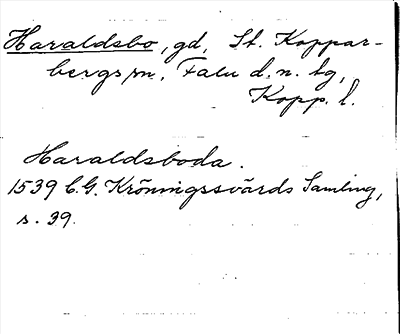 Haraldsbo, gd, St. Koppar-
bergs sn, Falu d. n. tg,
Kopp. l.
Haraldsboda.
1539 C.G. Kröningssvärds Samling,
s. 39.